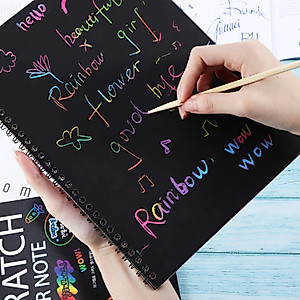 hello
beautiful
girl
Rainbow
flower
good bye
Rainbow,
wow
wow
WOW!
RATCH
R NOTE
om